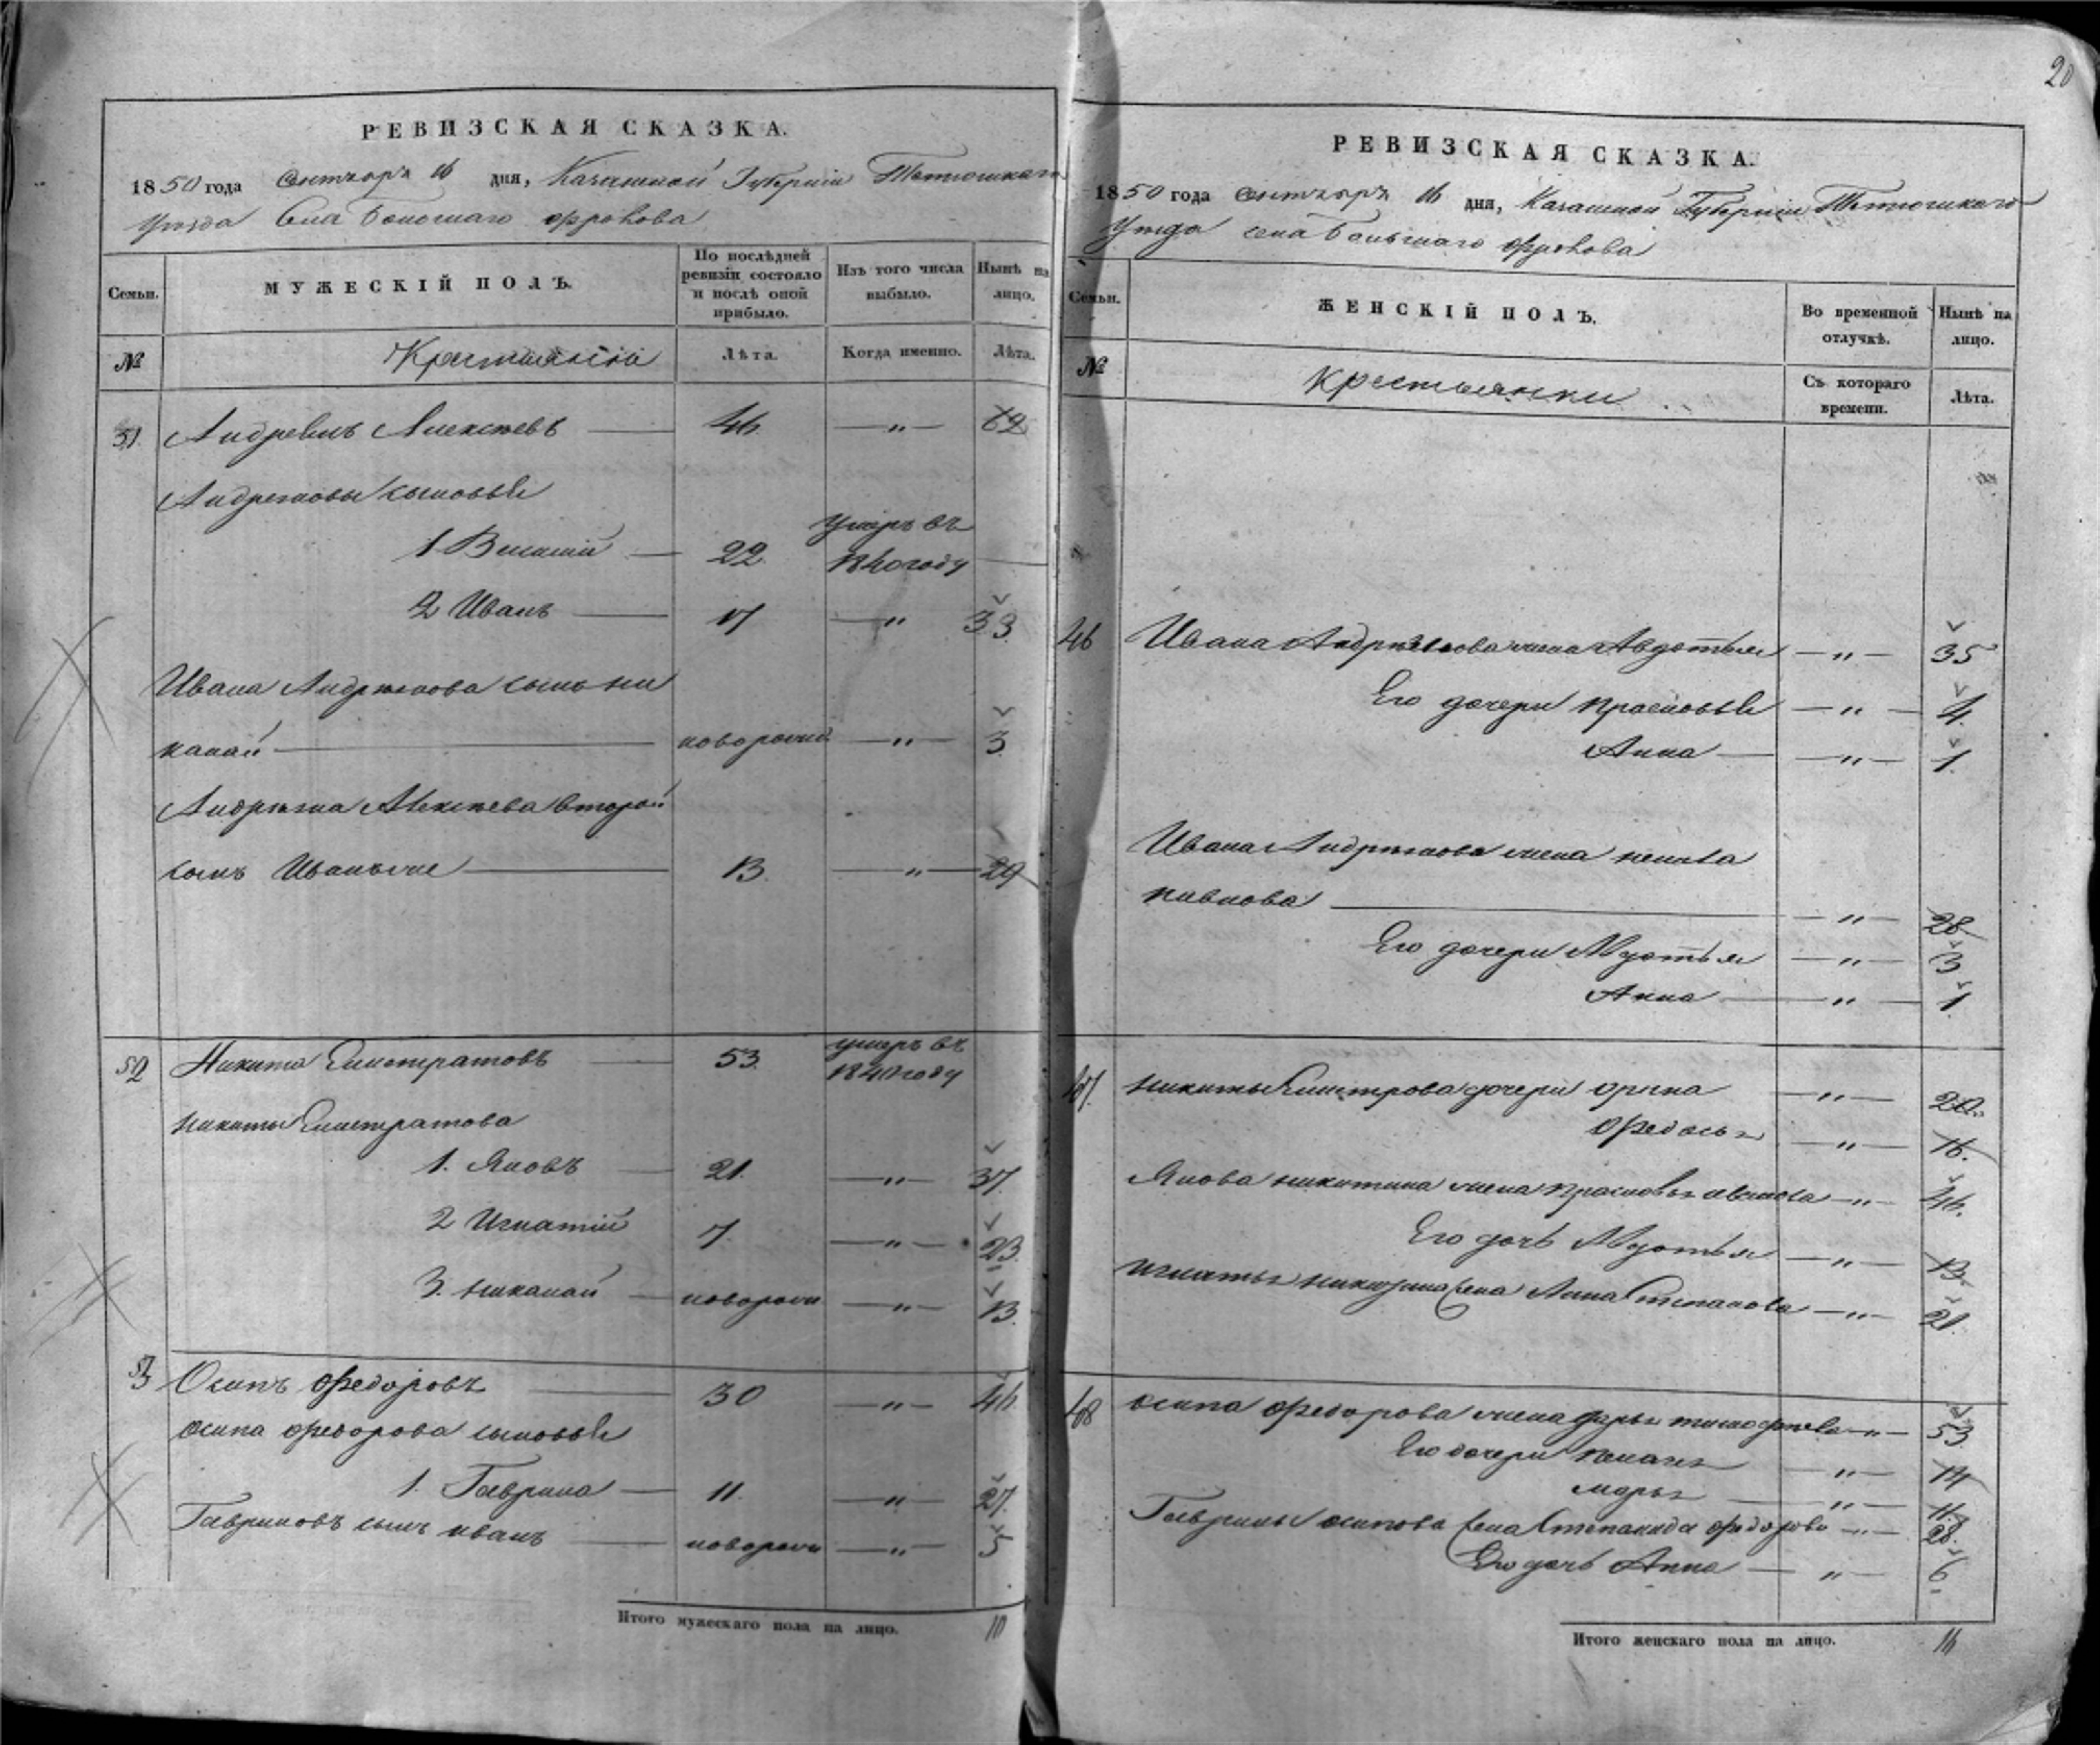 20
РЕВИЗСКАЯ СКАЗКА.
1850 года Сентября 16 дня, Казанской Губерніи Тетюшкаго
Уезда Села Большаго Фролова
Семьи. МУЖЕСКІЙ ПОЛЪ. По послѣдней ревизіи состояло и послѣ оной прибыло. Изъ того числа выбыло. Нынѣ на лицо.
№ Лѣта. Когда именно. Лѣта.
51. Алексѣевъ — 46. — " — 62
сыновья
1 Василий — 22. умеръ въ 1840 году
2 Иванъ — 17 — " 33
Ивана сынъ Ни
калай — новорожд. — " — 3
Алексѣева второй
сынъ Иванъ же — 13. — " — 29
52 Никита Елистратовъ — 53. умеръ въ
184 году
Никиты Елистратова
1. Яковъ — 21. — " — 37.
2 Игнатій 7. — " — 23.
3. Никалай — новорожд — " — 13.
53 Осипъ Федоровъ — 30 — " — 46
Осипа Федорова сыновья
1. Гаврила — 11. — " — 27.
Гавриловъ сынъ Иванъ — новорожд — " — 5
Итого мужескаго пола на лицо. 10
РЕВИЗСКАЯ СКАЗКА.
1850 года Сентября 16 дня, Казанской Губерніи Тетюшкаго
Уезда села Большаго Фролова
Семьи. ЖЕНСКІЙ ПОЛЪ. Во временной отлучкѣ. Нынѣ на лицо.
№ Крестьянки Съ котораго времени. Лѣта.
46 Ивана жена Авдотья — " — 35
Его дочери Прасковья — " — 4.
Анна — " — 1.
Ивана жена
Павлова — " — 28
Его дочери Авдотья — " — 3
Анна — " — 1.
47. Никиты дочери Орина — " — 20.
Федосья — " — 16.
Якова Никитина жена Прасковья Иванова — " — 46.
Его дочь Авдотья — " — 13.
Игнатья Никитина жена Анна Степанова — " — 21.
48 Осипа Федорова жена Дарья Тимофеева — " — 53
Его дочери — " — 14
Марья — " — 11.
Гаврилы Осипова жена Степанида Федорова — " — 28.
Его дочь Анна — " — 6
Итого женскаго пола на лицо. 16